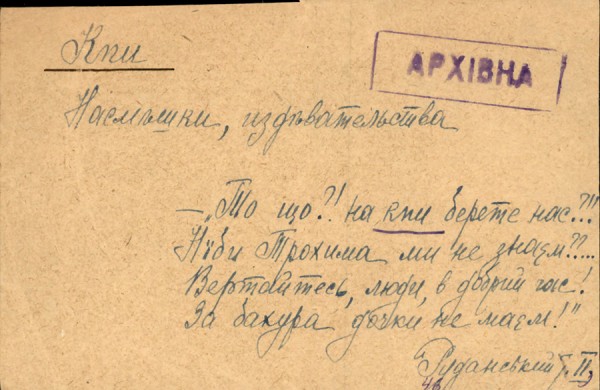 Кпи
АРХІВНА
Насмѣшки, издѣвательства
— „То що?! на кпи берете нас?!!
Ніби Трохима ми не знаєм??...
Вертайтесь, люди, в добрий час!
За бахура дочки не маєм!"
Руданський т. II,
46